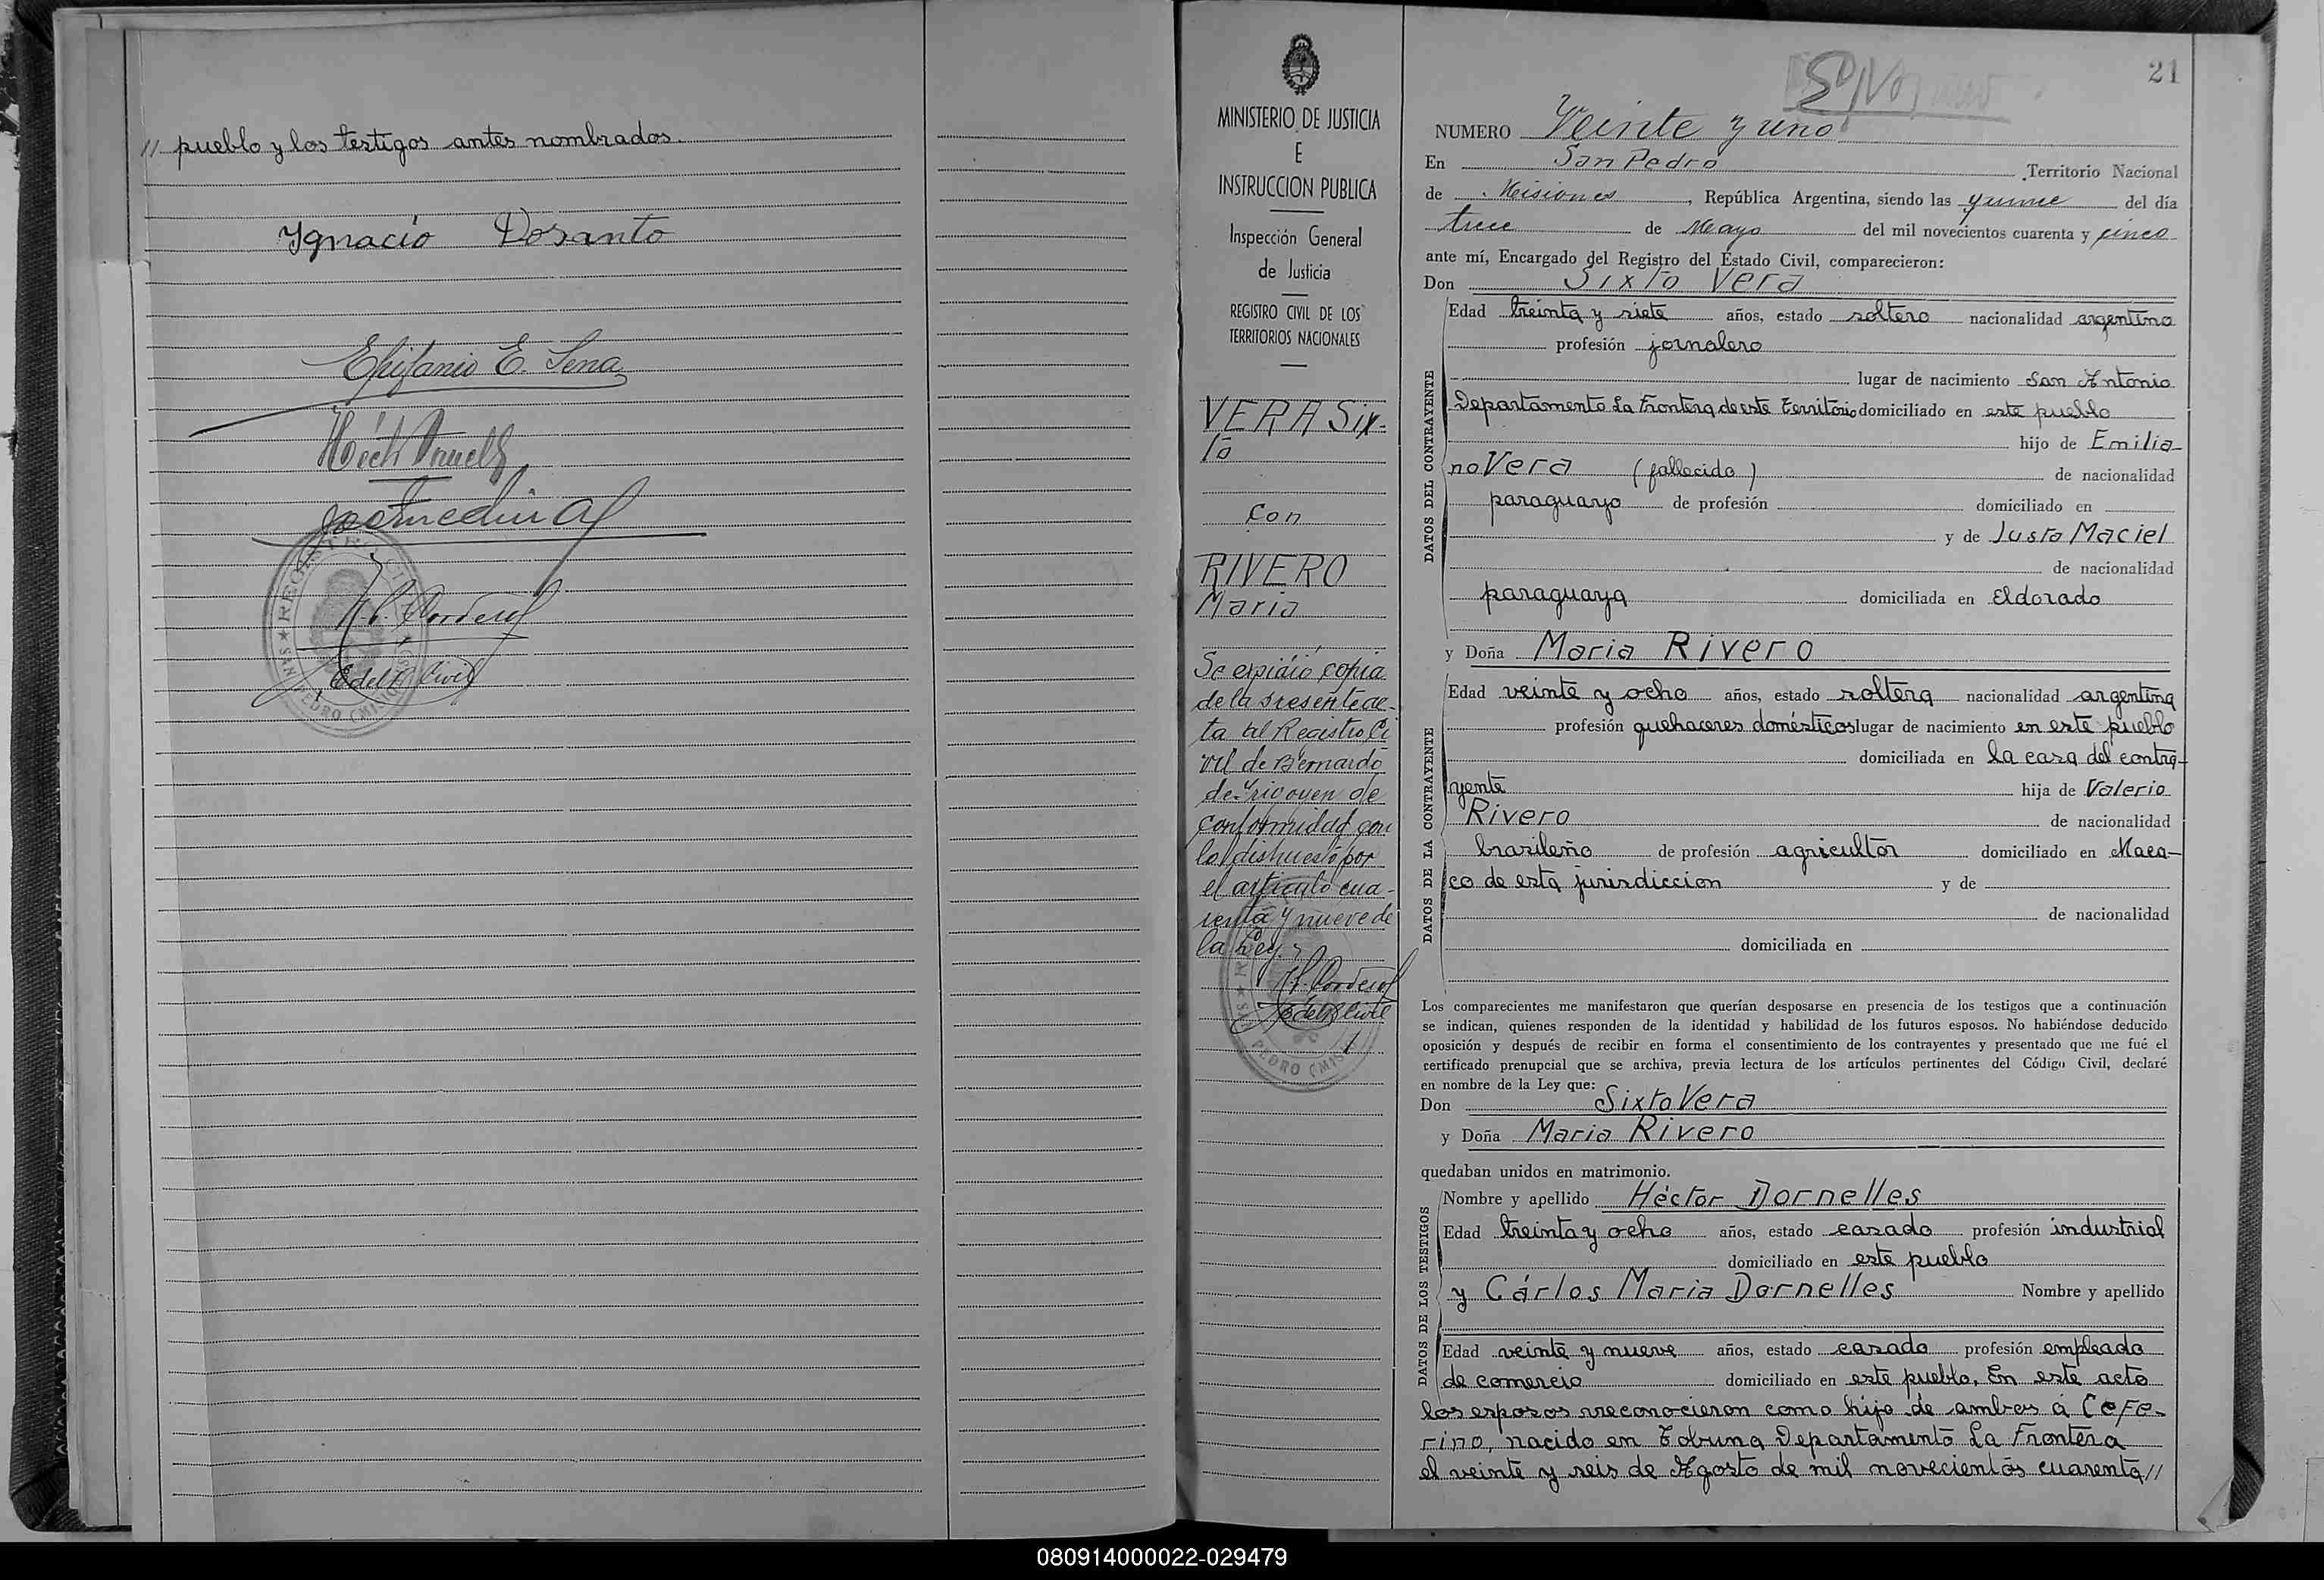 // pueblo y los testigos antes nombrados.
Ygnacio Dosanto
Epifanio E. Sena
REGISTRO CIVIL
SAN PEDRO (MISIONES)
E del R. Civil
MINISTERIO DE JUSTICIA
E
INSTRUCCION PUBLICA
Inspección General
de Justicia
REGISTRO CIVIL DE LOS
TERRITORIOS NACIONALES
VERA Six-
to
con
RIVERO
Maria
Se expidió copia
de la presente ac-
ta al Registro Ci
vil de Bernardo
de Irigoyen de
conformidad con
lo dispuesto por
el artículo cua-
renta y nueve de
la Ley.
E del R. Civil
21
NUMERO Veinte y uno
En San Pedro Territorio Nacional
de Misiones, República Argentina, siendo las quince del día
trece de Mayo del mil novecientos cuarenta y cinco
ante mí, Encargado del Registro del Estado Civil, comparecieron:
Don Sixto Vera
DATOS DEL CONTRAYENTE
Edad treinta y siete años, estado soltero nacionalidad argentino
profesión jornalero
lugar de nacimiento San Antonio
Departamento La Frontera de este Territorio domiciliado en este pueblo
hijo de Emilia-
no Vera (fallecido) de nacionalidad
paraguayo de profesión domiciliado en
y de Justa Maciel
de nacionalidad
paraguaya domiciliada en Eldorado
y Doña Maria Rivero
DATOS DE LA CONTRAYENTE
Edad veinte y ocho años, estado soltera nacionalidad argentina
profesión quehaceres domésticos lugar de nacimiento en este pueblo
domiciliada en la casa del contra-
yente hija de Valerio
Rivero de nacionalidad
brasileño de profesión agricultor domiciliado en Maca-
co de esta jurisdiccion y de
de nacionalidad
domiciliada en
Los comparecientes me manifestaron que querían desposarse en presencia de los testigos que a continuación
se indican, quienes responden de la identidad y habilidad de los futuros esposos. No habiéndose deducido
oposición y después de recibir en forma el consentimiento de los contrayentes y presentado que me fué el
certificado prenupcial que se archiva, previa lectura de los artículos pertinentes del Código Civil, declaré
en nombre de la Ley que:
Don Sixto Vera
y Doña Maria Rivero
quedaban unidos en matrimonio.
DATOS DE LOS TESTIGOS
Nombre y apellido Héctor Dornelles
Edad treinta y ocho años, estado casado profesión industrial
domiciliado en este pueblo
y Cárlos Maria Dornelles Nombre y apellido
Edad veinte y nueve años, estado casado profesión empleado
de comercio domiciliado en este pueblo. En este acto
los esposos reconocieron como hijo de ambos á Cefe-
rino, nacido en Tobuna Departamento La Frontera
el veinte y seis de Agosto de mil novecientos cuarenta//
080914000022-029479